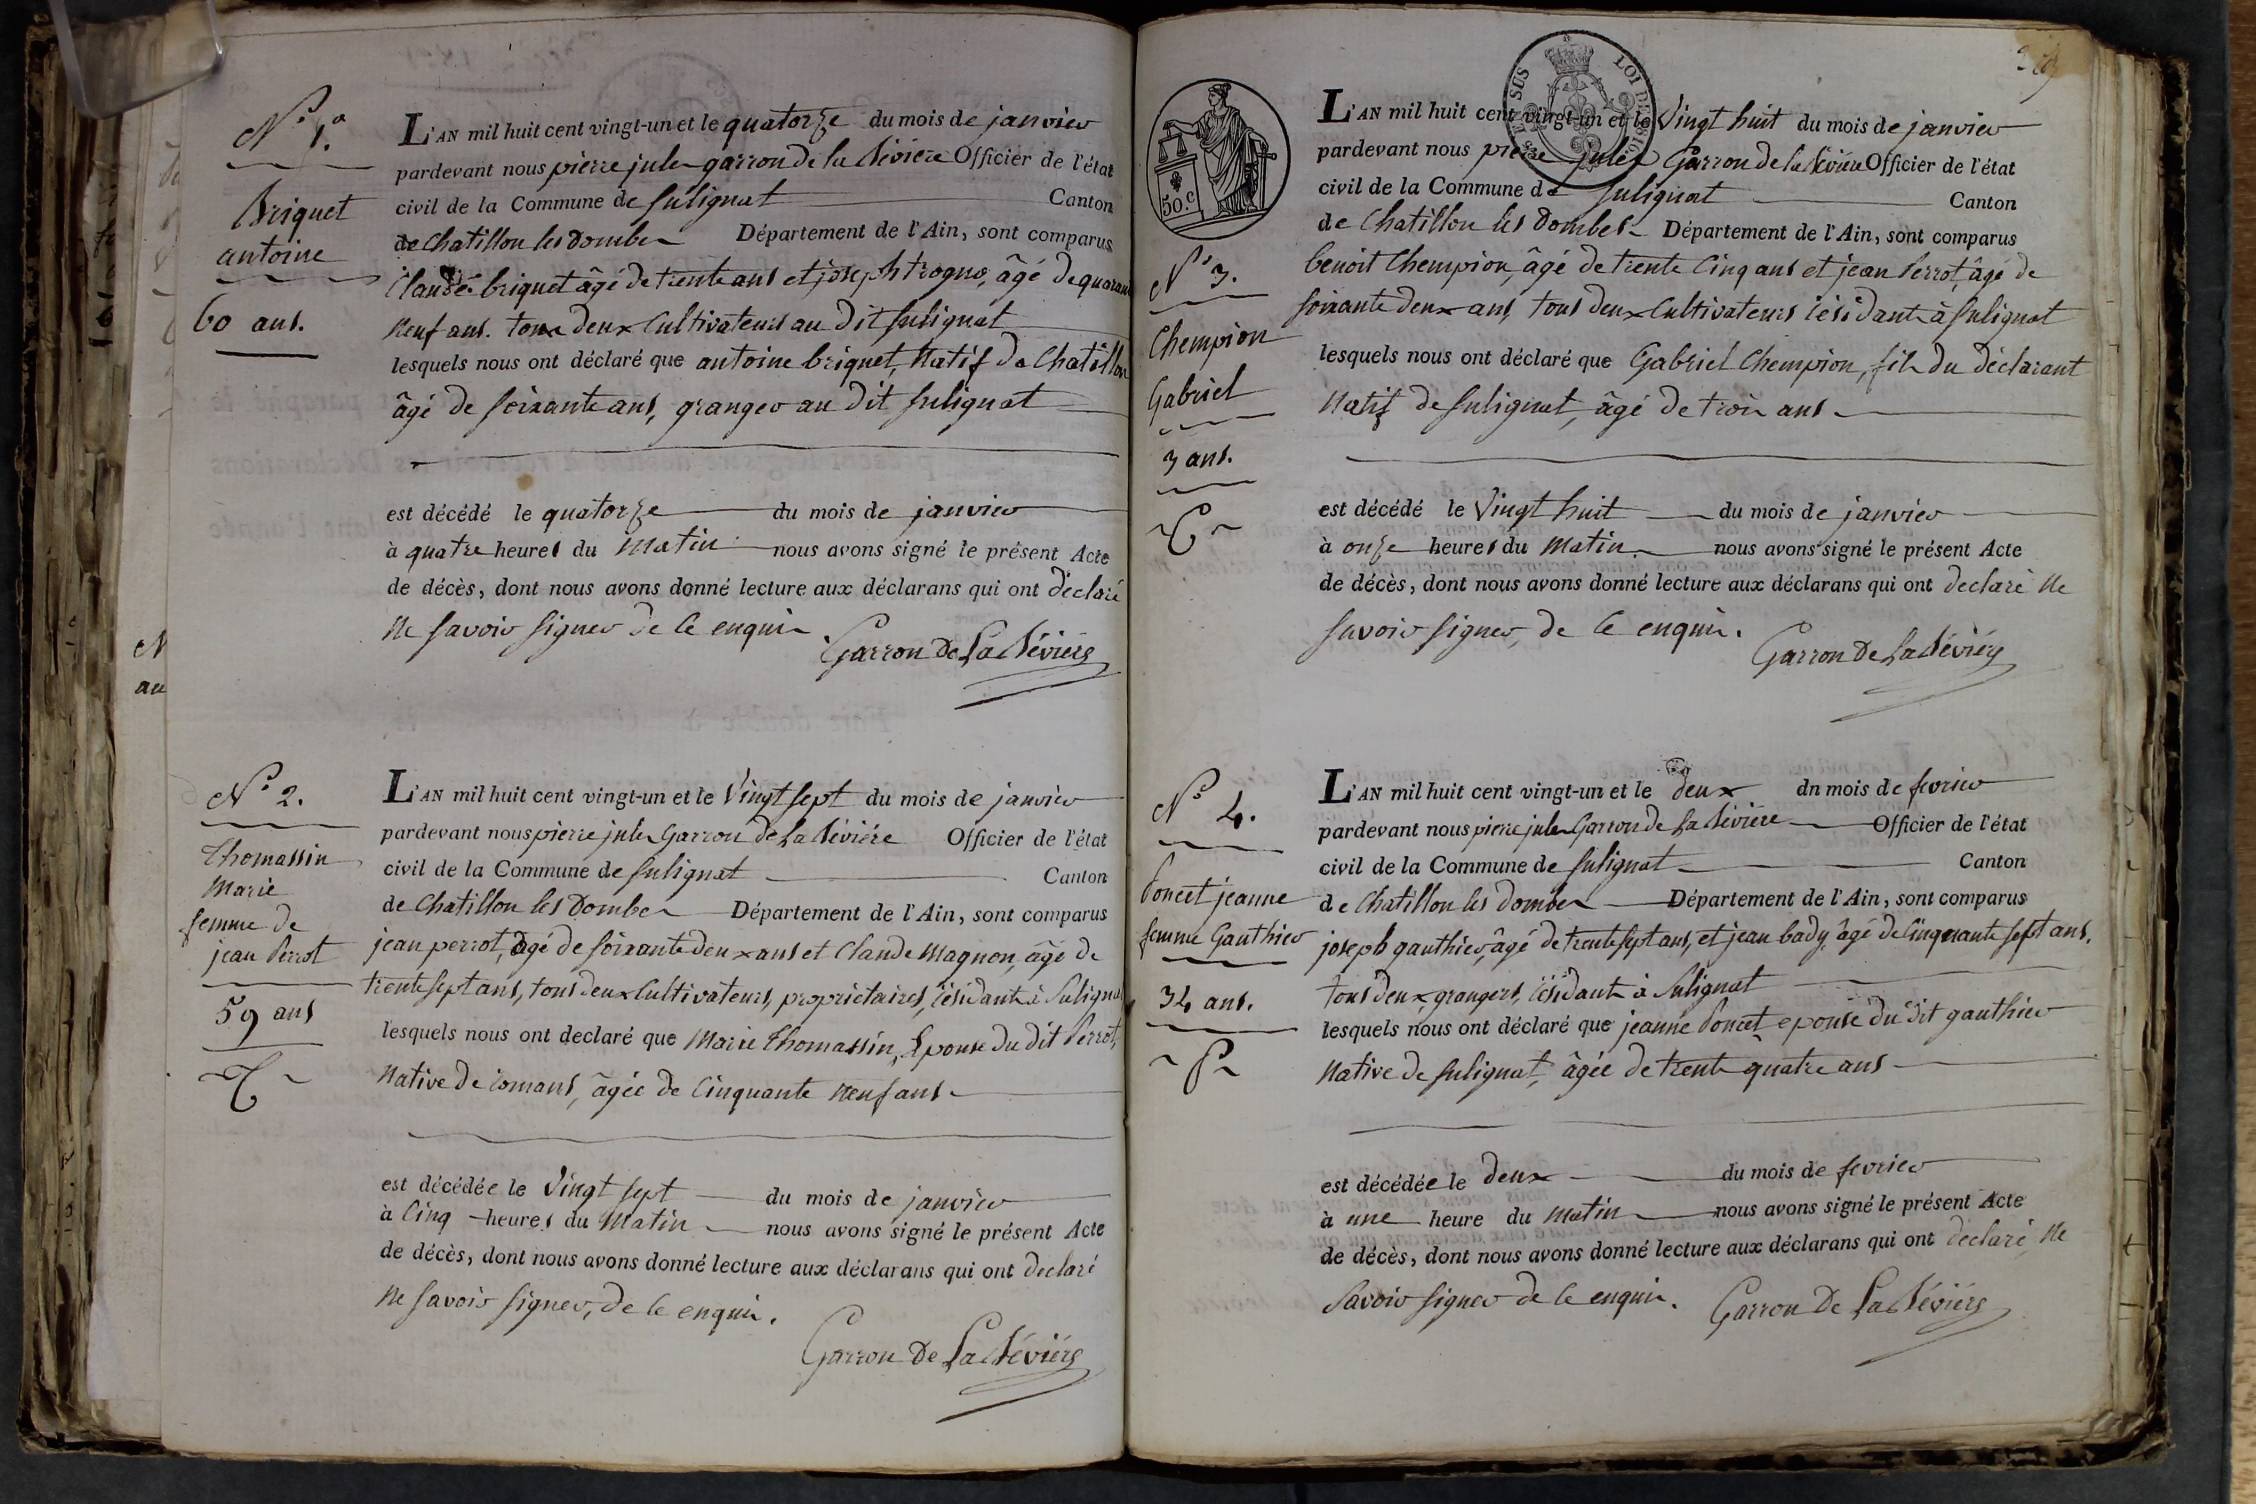 N.º 1.er
Briquet
antoine
60 ans.
L'AN mil huit cent vingt-un et le quatorze du mois de janvier
pardevant nous pierre jules garron de la Bévière Officier de l'état
civil de la Commune de Sulignat Canton
de Chatillon les Dombes Département de l'Ain, sont comparus
Claude briquet âgé de trente ans et joseph trogno, âgé de quarante
neuf ans. tous deux Cultivateurs au dit Sulignat
lesquels nous ont déclaré que antoine briquet, Natif de Chatillon
âgé de soixante ans, granger au dit Sulignat
est décédé le quatorze du mois de janvier
à quatre heures du Matin nous avons signé le présent Acte
de décès, dont nous avons donné lecture aux déclarans qui ont déclaré
Ne savoir signer de ce enquis
Garron De La Bévière
N.º 2.
Thomassin
Marie
femme de
jean Perrot
59 ans
L'AN mil huit cent vingt-un et le Vingt sept du mois de janvier
pardevant nous pierre jules Garron de La Bévière Officier de l'état
civil de la Commune de Sulignat Canton
de Chatillon les Dombes Département de l'Ain, sont comparus
jean perrot, âgé de soixante deux ans et Claude Magnon, âgé de
trente sept ans, tous deux Cultivateurs, propriétaires, résidants à Sulignat
lesquels nous ont declaré que Marie Thomassin, Epouse du dit Perrot,
Native de romans, âgée de Cinquante Neuf ans
est décédée le Vingt sept du mois de janvier
à Cinq heures du Matin nous avons signé le présent Acte
de décès, dont nous avons donné lecture aux déclarans qui ont declaré
Ne savoir signer, de ce enquis.
Garron De La Bévière
50.c
LOI DE 1816.
EN SUS
N.º 3.
Chempion
Gabriel
3 ans.
L'AN mil huit cent vingt-un et le Vingt huit du mois de janvier
pardevant nous pierre jules Garron de la Bévière Officier de l'état
civil de la Commune de Sulignat Canton
de Chatillon les Dombes Département de l'Ain, sont comparus
benoit Chempion, âgé de trente Cinq ans et jean Perrot, âgé de
soixante deux ans, tous deux Cultivateurs résidants à Sulignat
lesquels nous ont déclaré que Gabriel Chempion, fils du déclarant
Natif de Sulignat, âgé de trois ans
est décédé le Vingt huit du mois de janvier
à onze heures du Matin. nous avons signé le présent Acte
de décès, dont nous avons donné lecture aux déclarans qui ont declaré Ne
savoir signer, de ce enquis.
Garron De La Bévière
N.º 4.
Poncet jeanne
femme Gauthier
34 ans.
L'AN mil huit cent vingt-un et le deux dn mois de fevrier
pardevant nous pierre jules Garron de La Bévière Officier de l'état
civil de la Commune de Sulignat Canton
de Chatillon les Dombes Département de l'Ain, sont comparus
joseph gauthier, âgé de trente sept ans, et jean bady, âgé de Cinquante sept ans,
tous deux grangers, résidants à Sulignat
lesquels nous ont déclaré que jeanne Poncet epouse du dit gauthier
Native de Sulignat, âgée de trente quatre ans
est décédée le deux du mois de fevrier
à une heure du matin nous avons signé le présent Acte
de décès, dont nous avons donné lecture aux déclarans qui ont declaré Ne
Savoir signer de ce enquis.
Garron De La Bévière